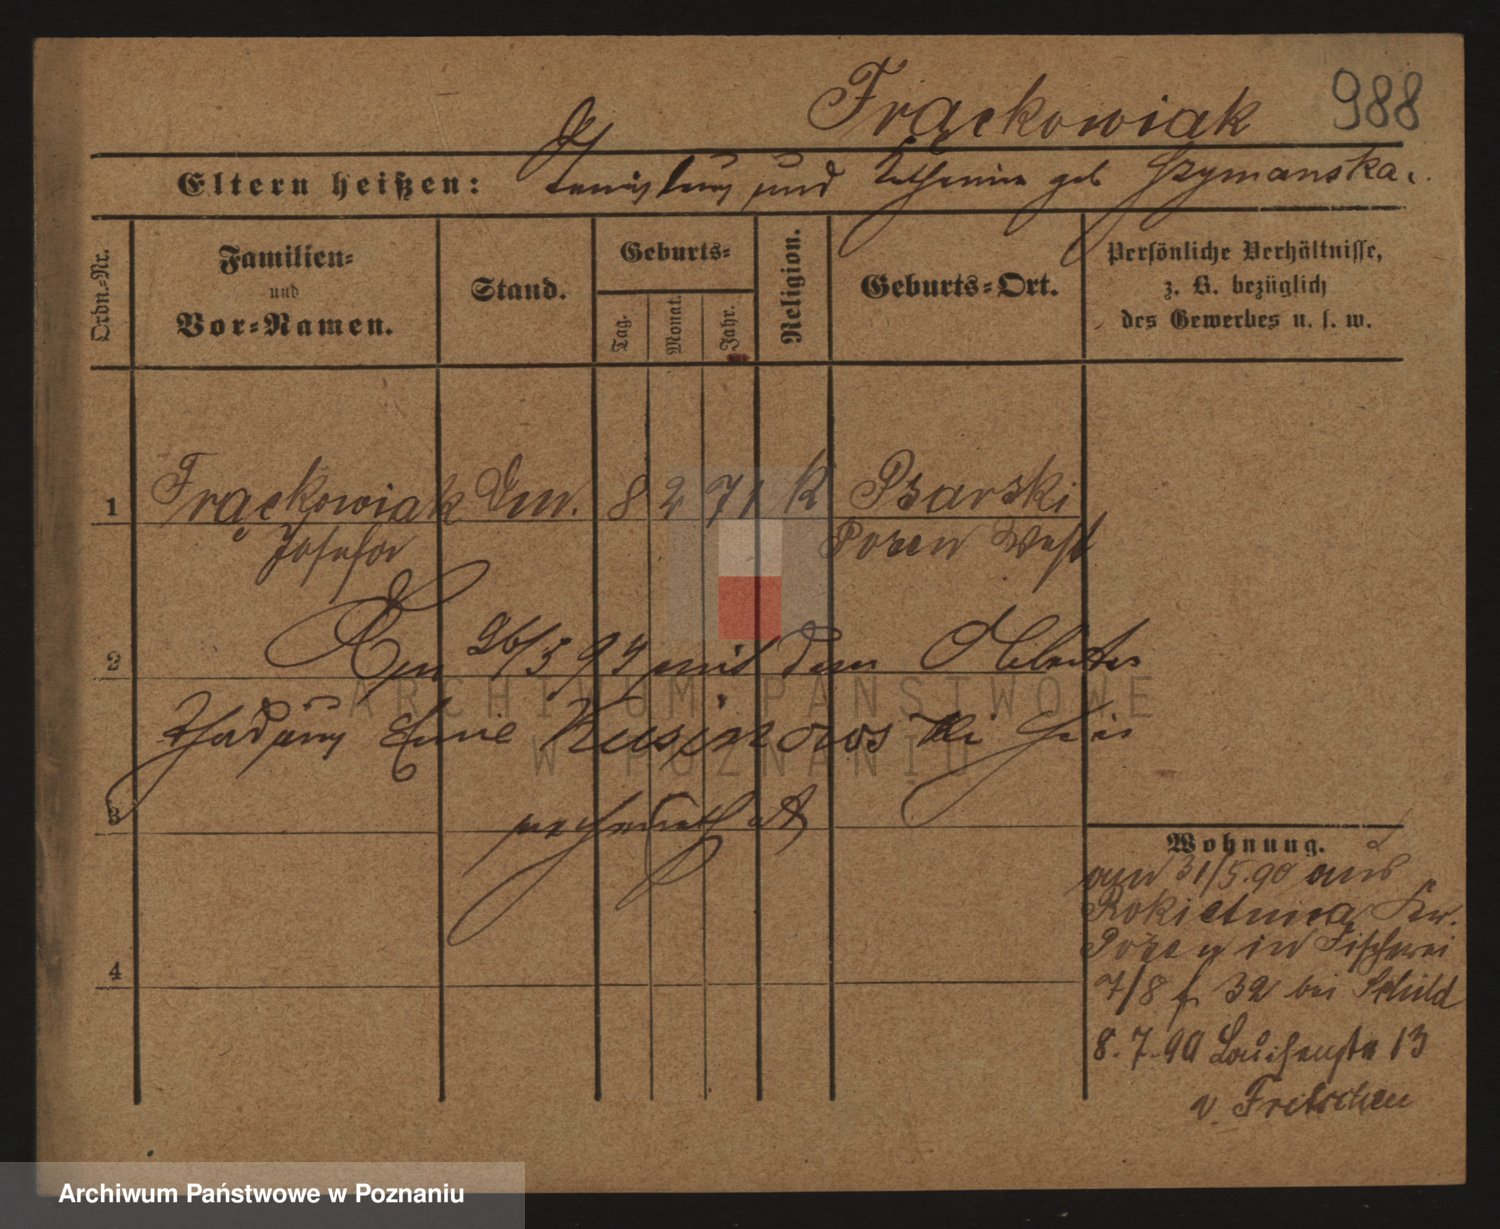 Frąckowiak 988
Eltern heißen: Stanislaus und Katharina geb Szymanska.
Ordn.-Nr.
Familien-
und
Vor-Namen.
Stand.
Geburts-
Tag.
Monat.
Jahr.
Religion.
Geburts-Ort.
Persönliche Verhältnisse,
z. B. bezüglich
des Gewerbes u. s. w.
1 Frąckowiak 8 2 71 K Psarski
Josefa Posen West
2 Am 26/5 94 mit dem Arbeiter
Kusjnowski hier
3 verheirathet
4
Wohnung.
am 31/5.90 aus
Rokietnica Kr.
Posen in Fischerei
7/8 f. 32 bei Schuld
8.7.90 13
v. Fretschen
ARCHIWUM PAŃSTWOWE
W POZNANIU
Archiwum Państwowe w Poznaniu